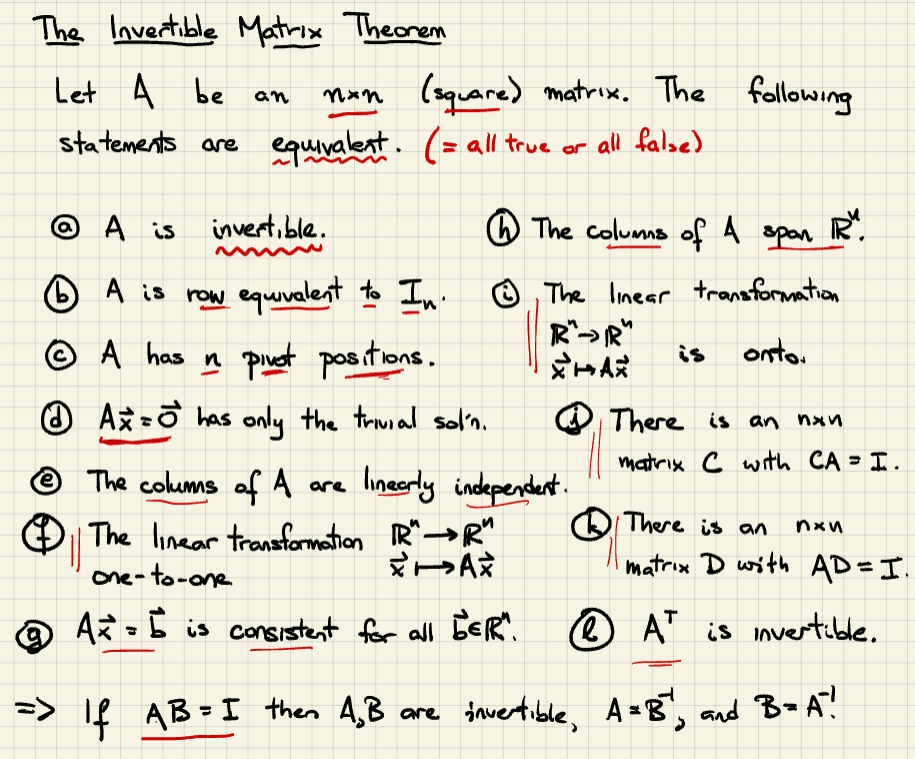 The Invertible Matrix Theorem
Let A be an n×n (square) matrix. The following
statements are equivalent. (= all true or all false)
ⓐ A is invertible.
ⓑ A is row equivalent to Iₙ.
ⓒ A has n pivot positions.
ⓓ Ax⃗ = 0⃗ has only the trivial sol'n.
ⓔ The columns of A are linearly independent.
ⓕ The linear transformation ℝⁿ → ℝⁿ
one-to-one. x⃗ ↦ Ax⃗
ⓖ Ax⃗ = b⃗ is consistent for all b⃗ ∈ ℝⁿ.
ⓗ The columns of A span ℝⁿ.
ⓘ The linear transformation
ℝⁿ → ℝⁿ
x⃗ ↦ Ax⃗ is onto.
ⓙ There is an n×n
matrix C with CA = I.
ⓚ There is an n×n
matrix D with AD = I.
ⓛ Aᵀ is invertible.
=> If AB = I then A,B are invertible, A = B⁻¹, and B = A⁻¹!